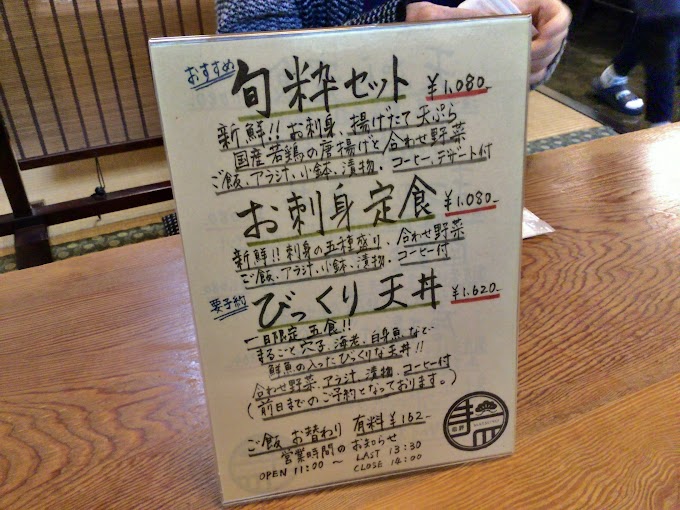 おすすめ 旬粋セット ¥1,080-
新鮮!!お刺身、揚げたて天ぷら
国産若鶏の唐揚げと合わせ野菜
ご飯、アラ汁、小鉢、漬物・コーヒー、デザート付
お刺身定食 ¥1,080-
新鮮!!刺身の五種盛り、合わせ野菜
ご飯、アラ汁、小鉢、漬物・コーヒー付
要予約 びっくり天丼 ¥1,620-
一日限定五食!!
まるごと穴子、海老、白身魚など
鮮魚の入ったびっくりな天丼!!
合わせ野菜、アラ汁、漬物、コーヒー付
(前日までのご予約となっております。)
ご飯お替わり 有料¥162-
営業時間のお知らせ
OPEN 11:00 ~ LAST 13:30
CLOSE 14:00